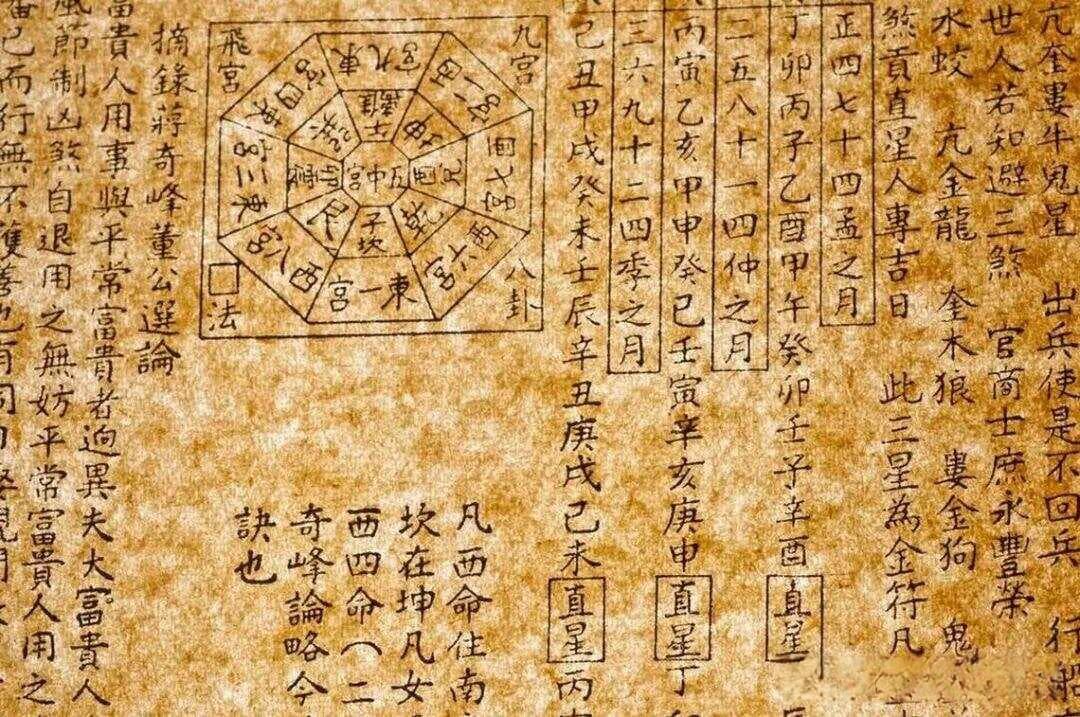 亢奎婁牛鬼星　出兵使是不回兵　行
世人若知避三煞　官商士庶永豐榮
水蛟　亢金龍　奎木狼　婁金狗　鬼
煞貢直星人專吉日　此三星為金符凡
正四七十四孟之月
丁卯丙子乙酉甲午癸卯壬子辛酉直星
二五八十一四仲之月
丙寅乙亥甲申癸巳壬寅辛亥庚申直星丁
三六九十二四季之月
己丑甲戌癸未壬辰辛丑庚戌己未直星丙
凡西命住南
坎在坤凡女
西四命（二
奇峰論略今
訣也
九宮
八卦
飛宮
□法
宮九東
宮一西
西七宮
西六宮
東一宮
西八宮
東三宮
東四宮
離士
坤
兌
乾
子坎
艮
震卯
巽
中宮
摘錄蔣奇峰董公選論
富貴人用事與平常富貴者逈異夫大富貴人
風節制凶煞自退用之無妨平常富貴人用之
已而行無不獲善也